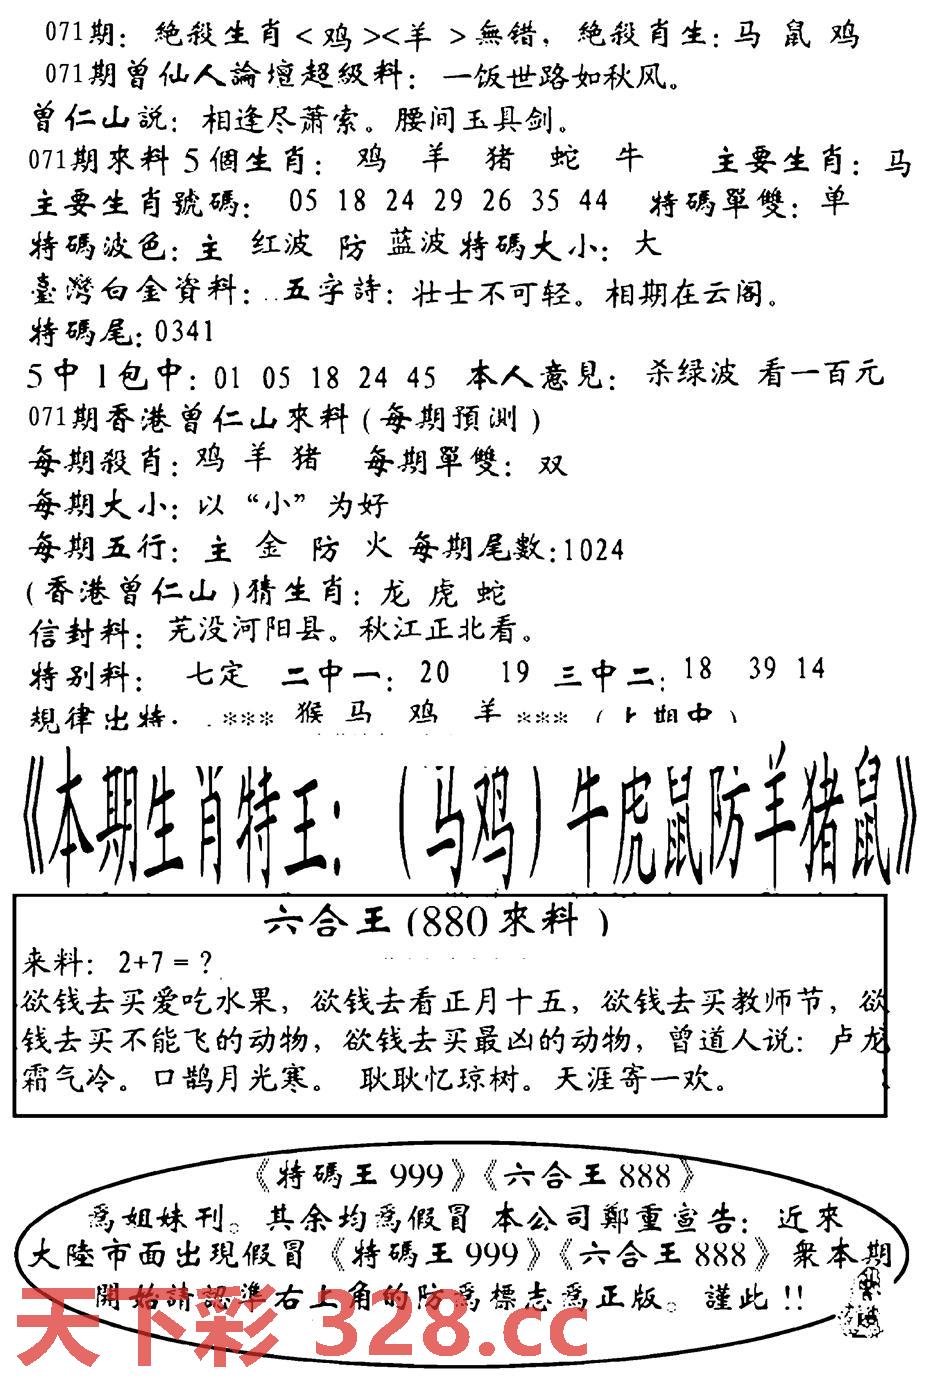 071期: 绝殺生肖<鸡><羊>無错, 绝殺肖生: 马 鼠 鸡
071期曾仙人論壇超級料: 一饭世路如秋风。
曾仁山説: 相逢尽萧索。腰间玉具剑。
071期來料5個生肖: 鸡 羊 猪 蛇 牛 主要生肖: 马
主要生肖號碼: 05 18 24 29 26 35 44 特碼單雙: 单
特碼波色: 主 红波 防 蓝波 特碼大小: 大
臺灣白金資料: 五字詩: 壮士不可轻。相期在云阁。
特碼尾: 0341
5中1包中: 01 05 18 24 45 本人意見: 杀绿波 看一百元
071期香港曾仁山來料(每期預測)
每期殺肖: 鸡 羊 猪 每期單雙: 双
每期大小: 以“小”为好
每期五行: 主 金 防 火 每期尾數:1024
(香港曾仁山)猜生肖: 龙 虎 蛇
信封料: 芜没河阳县。秋江正北看。
特别料: 七定 二中一: 20 19 三中二: 18 39 14
規律出特: ***猴 马 鸡 羊*** (上期中)
《本期生肖特王: (马鸡)牛虎鼠防羊猪鼠》
六合王(880來料)
来料: 2+7=?
欲钱去买爱吃水果, 欲钱去看正月十五, 欲钱去买教师节, 欲
钱去买不能飞的动物, 欲钱去买最凶的动物, 曾道人说: 卢龙
霜气冷。口鹊月光寒。 耿耿忆琼树。天涯寄一欢。
《特碼王999》《六合王888》
爲姐妹刊。其余均爲假冒 本公司鄭重宣告: 近來
大陸市面出現假冒《特碼王999》《六合王888》衆本期
開始請認準右上角的防爲標志爲正版。謹此!!
天下彩 328.cc